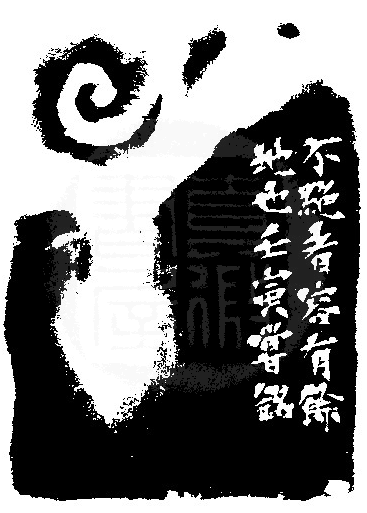 不絕者容有餘
地也壬寅銘